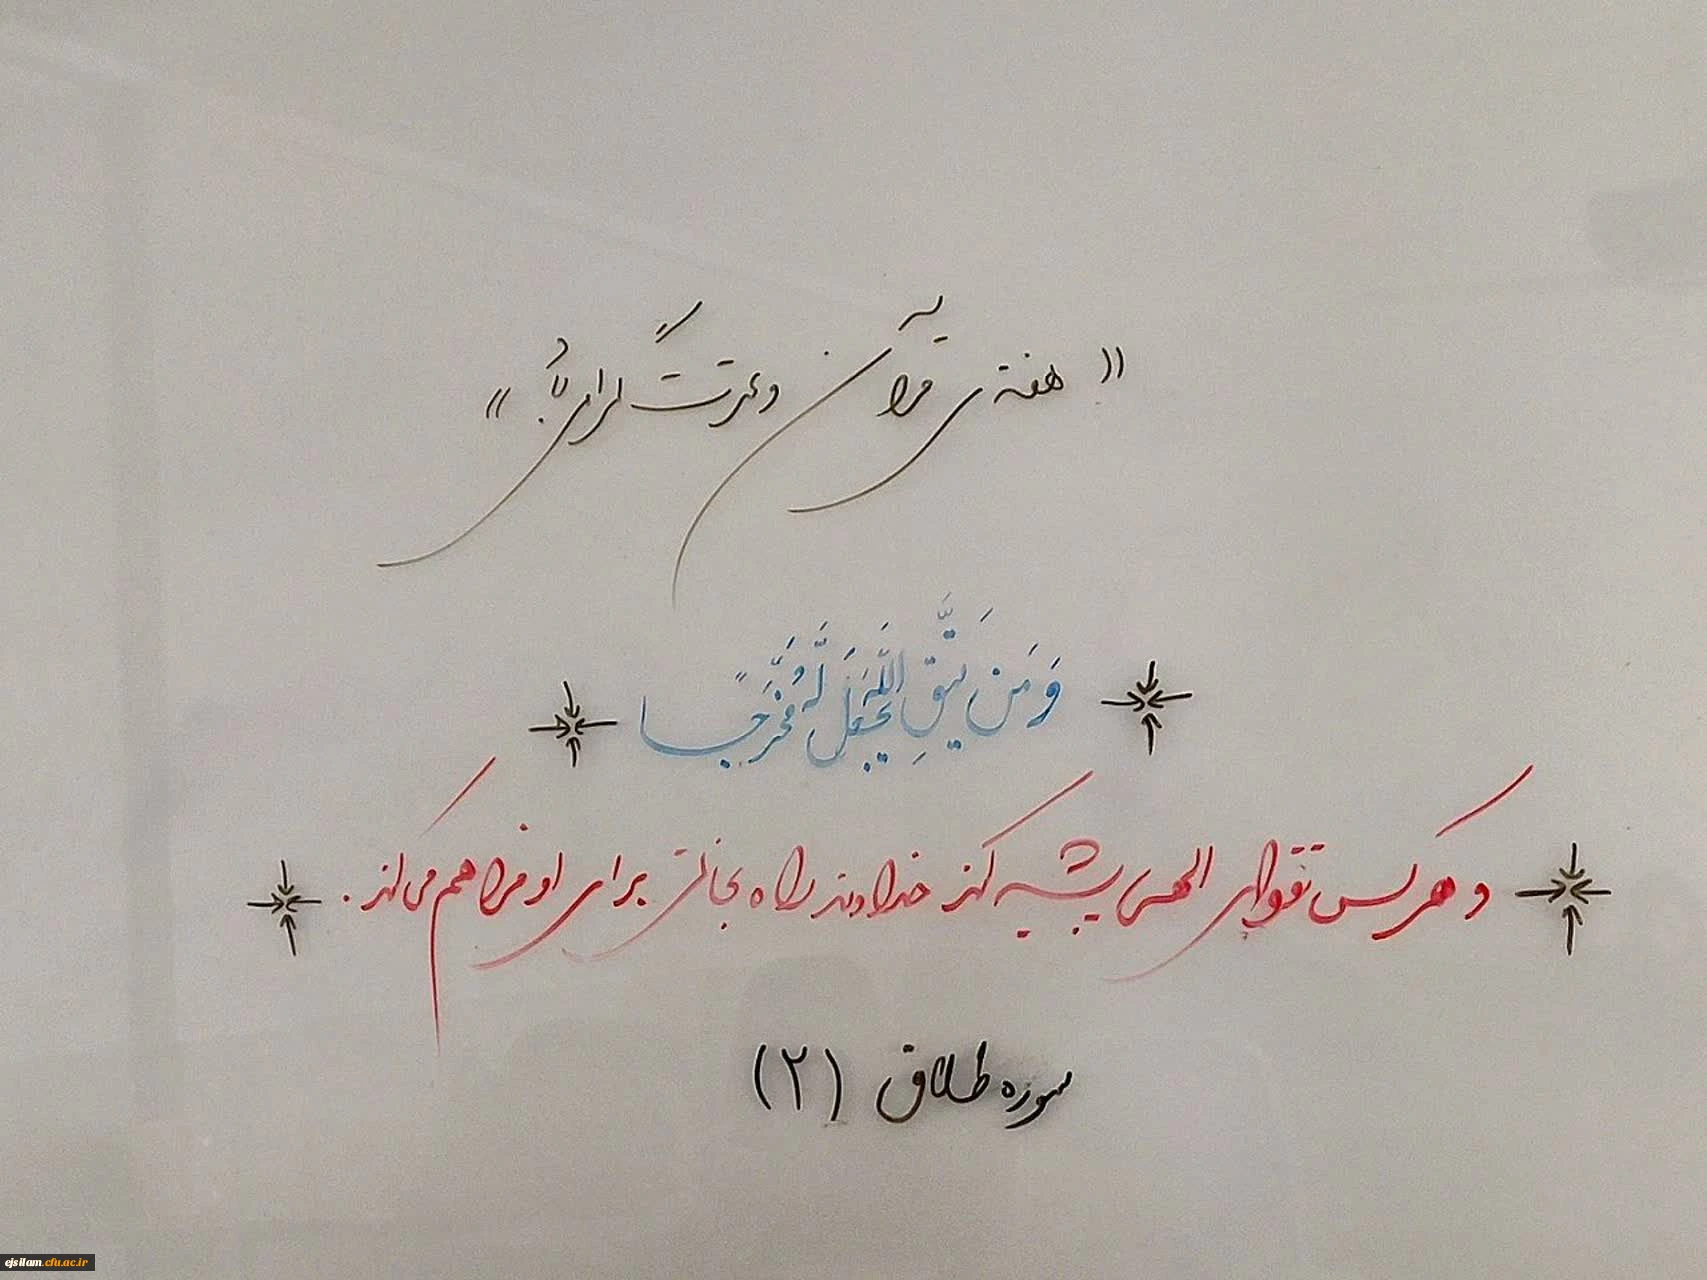 « هفته ی قرآن و عترت گرامی باد »
وَ مَن یَتَّقِ اللَّهَ یَجعَل لَّهُ مَخرَجًا
و هر کس تقوای الهی پیشه کند خداوند راه نجاتی برای او فراهم می کند .
سوره طلاق (۲)
ejsilam.cfu.ac.ir